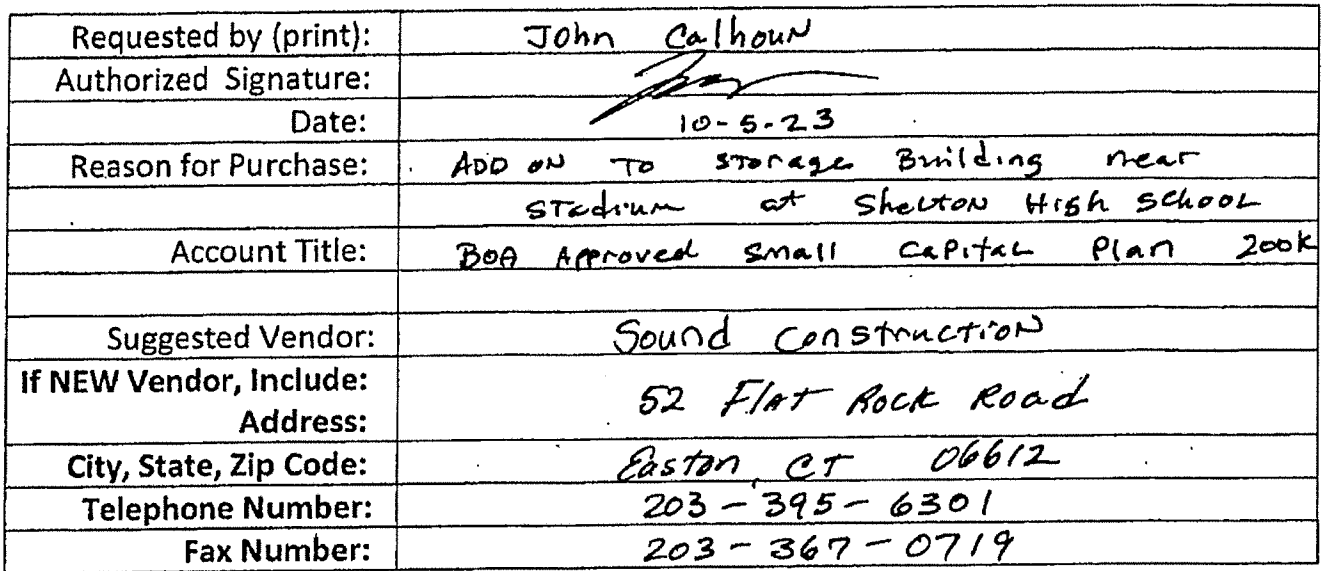 Requested by (print): John Calhoun
Authorized Signature:
Date: 10-5-23
Reason for Purchase: ADD ON TO STORAGE Building near
STadium at Shelton High School
Account Title: BOA Approved Small Capital Plan 200k
Suggested Vendor: Sound Construction
If NEW Vendor, Include:
Address: 52 Flat Rock Road
City, State, Zip Code: Easton, CT 06612
Telephone Number: 203-395-6301
Fax Number: 203-367-0719